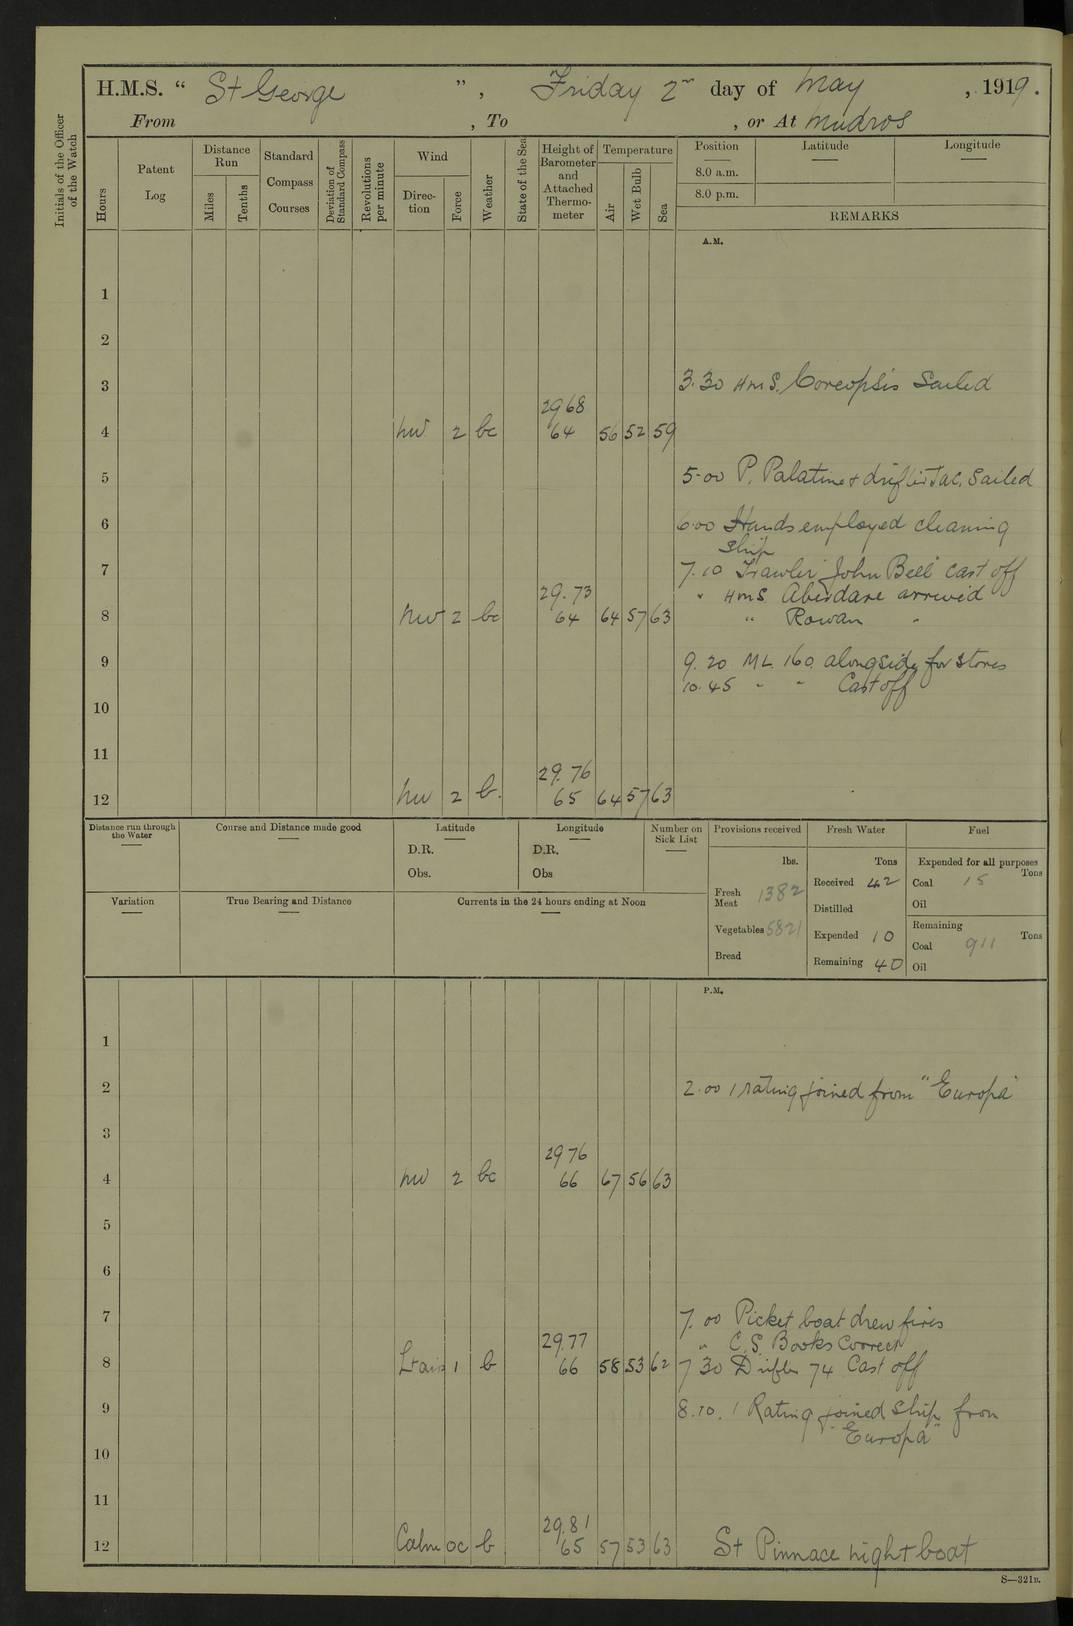 H.M.S. “ St George ”, Friday 2nd day of May, 1919.
From , To , or At Mudros
Initials of the Officer of the Watch
Hours
Patent Log
Distance Run
Miles
Tenths
Standard Compass Courses
Deviation of Standard Compass
Revolutions per minute
Wind
Direction
Force
Weather
State of the Sea
Height of Barometer and Attached Thermometer
Temperature
Air
Wet Bulb
Sea
Position Latitude Longitude
8.0 a.m.
8.0 p.m.
REMARKS
A.M.
1
2
3 3.30 HMS. Coreopsis Sailed
2968
4 NW 2 bc 64 56 52 59
5 5.00 P. Palatine & drifter Sailed
6 6.00 Hands employed cleaning
ship
7 7.10 Trawler John Bell cast off
29.73 " HMS Aberdare arrived
8 NW 2 bc 64 64 57 63 " Rowan "
9 9.20 ML 160 alongside for stores
10.45 " " Cast off
10
11
29.76
12 NW 2 b. 65 64 57 63
Distance run through the Water
Course and Distance made good
Latitude
D.R.
Obs.
Longitude
D.R.
Obs
Number on Sick List
Provisions received
lbs.
Fresh Meat 1382
Vegetables 5821
Bread
Fresh Water
Tons
Received 42
Distilled
Expended 10
Remaining 40
Fuel
Expended for all purposes
Tons
Coal 15
Oil
Remaining
Tons
Coal 911
Oil
Variation
True Bearing and Distance
Currents in the 24 hours ending at Noon
P.M.
1
2 2.00 1 rating joined from "Europa"
3
2976
4 NW 2 bc 66 67 56 63
5
6
7 7.00 Picket boat drew fires
29.77 " C.S. Books Correct
8 Lt airs 1 b 66 58 53 62 7 30 Drifter 74 Cast off
9 8.10. 1 Rating joined ship from
"Europa"
10
11
29.81
12 Calm oc b 65 57 53 63 St Pinnace night boat
S—321B.